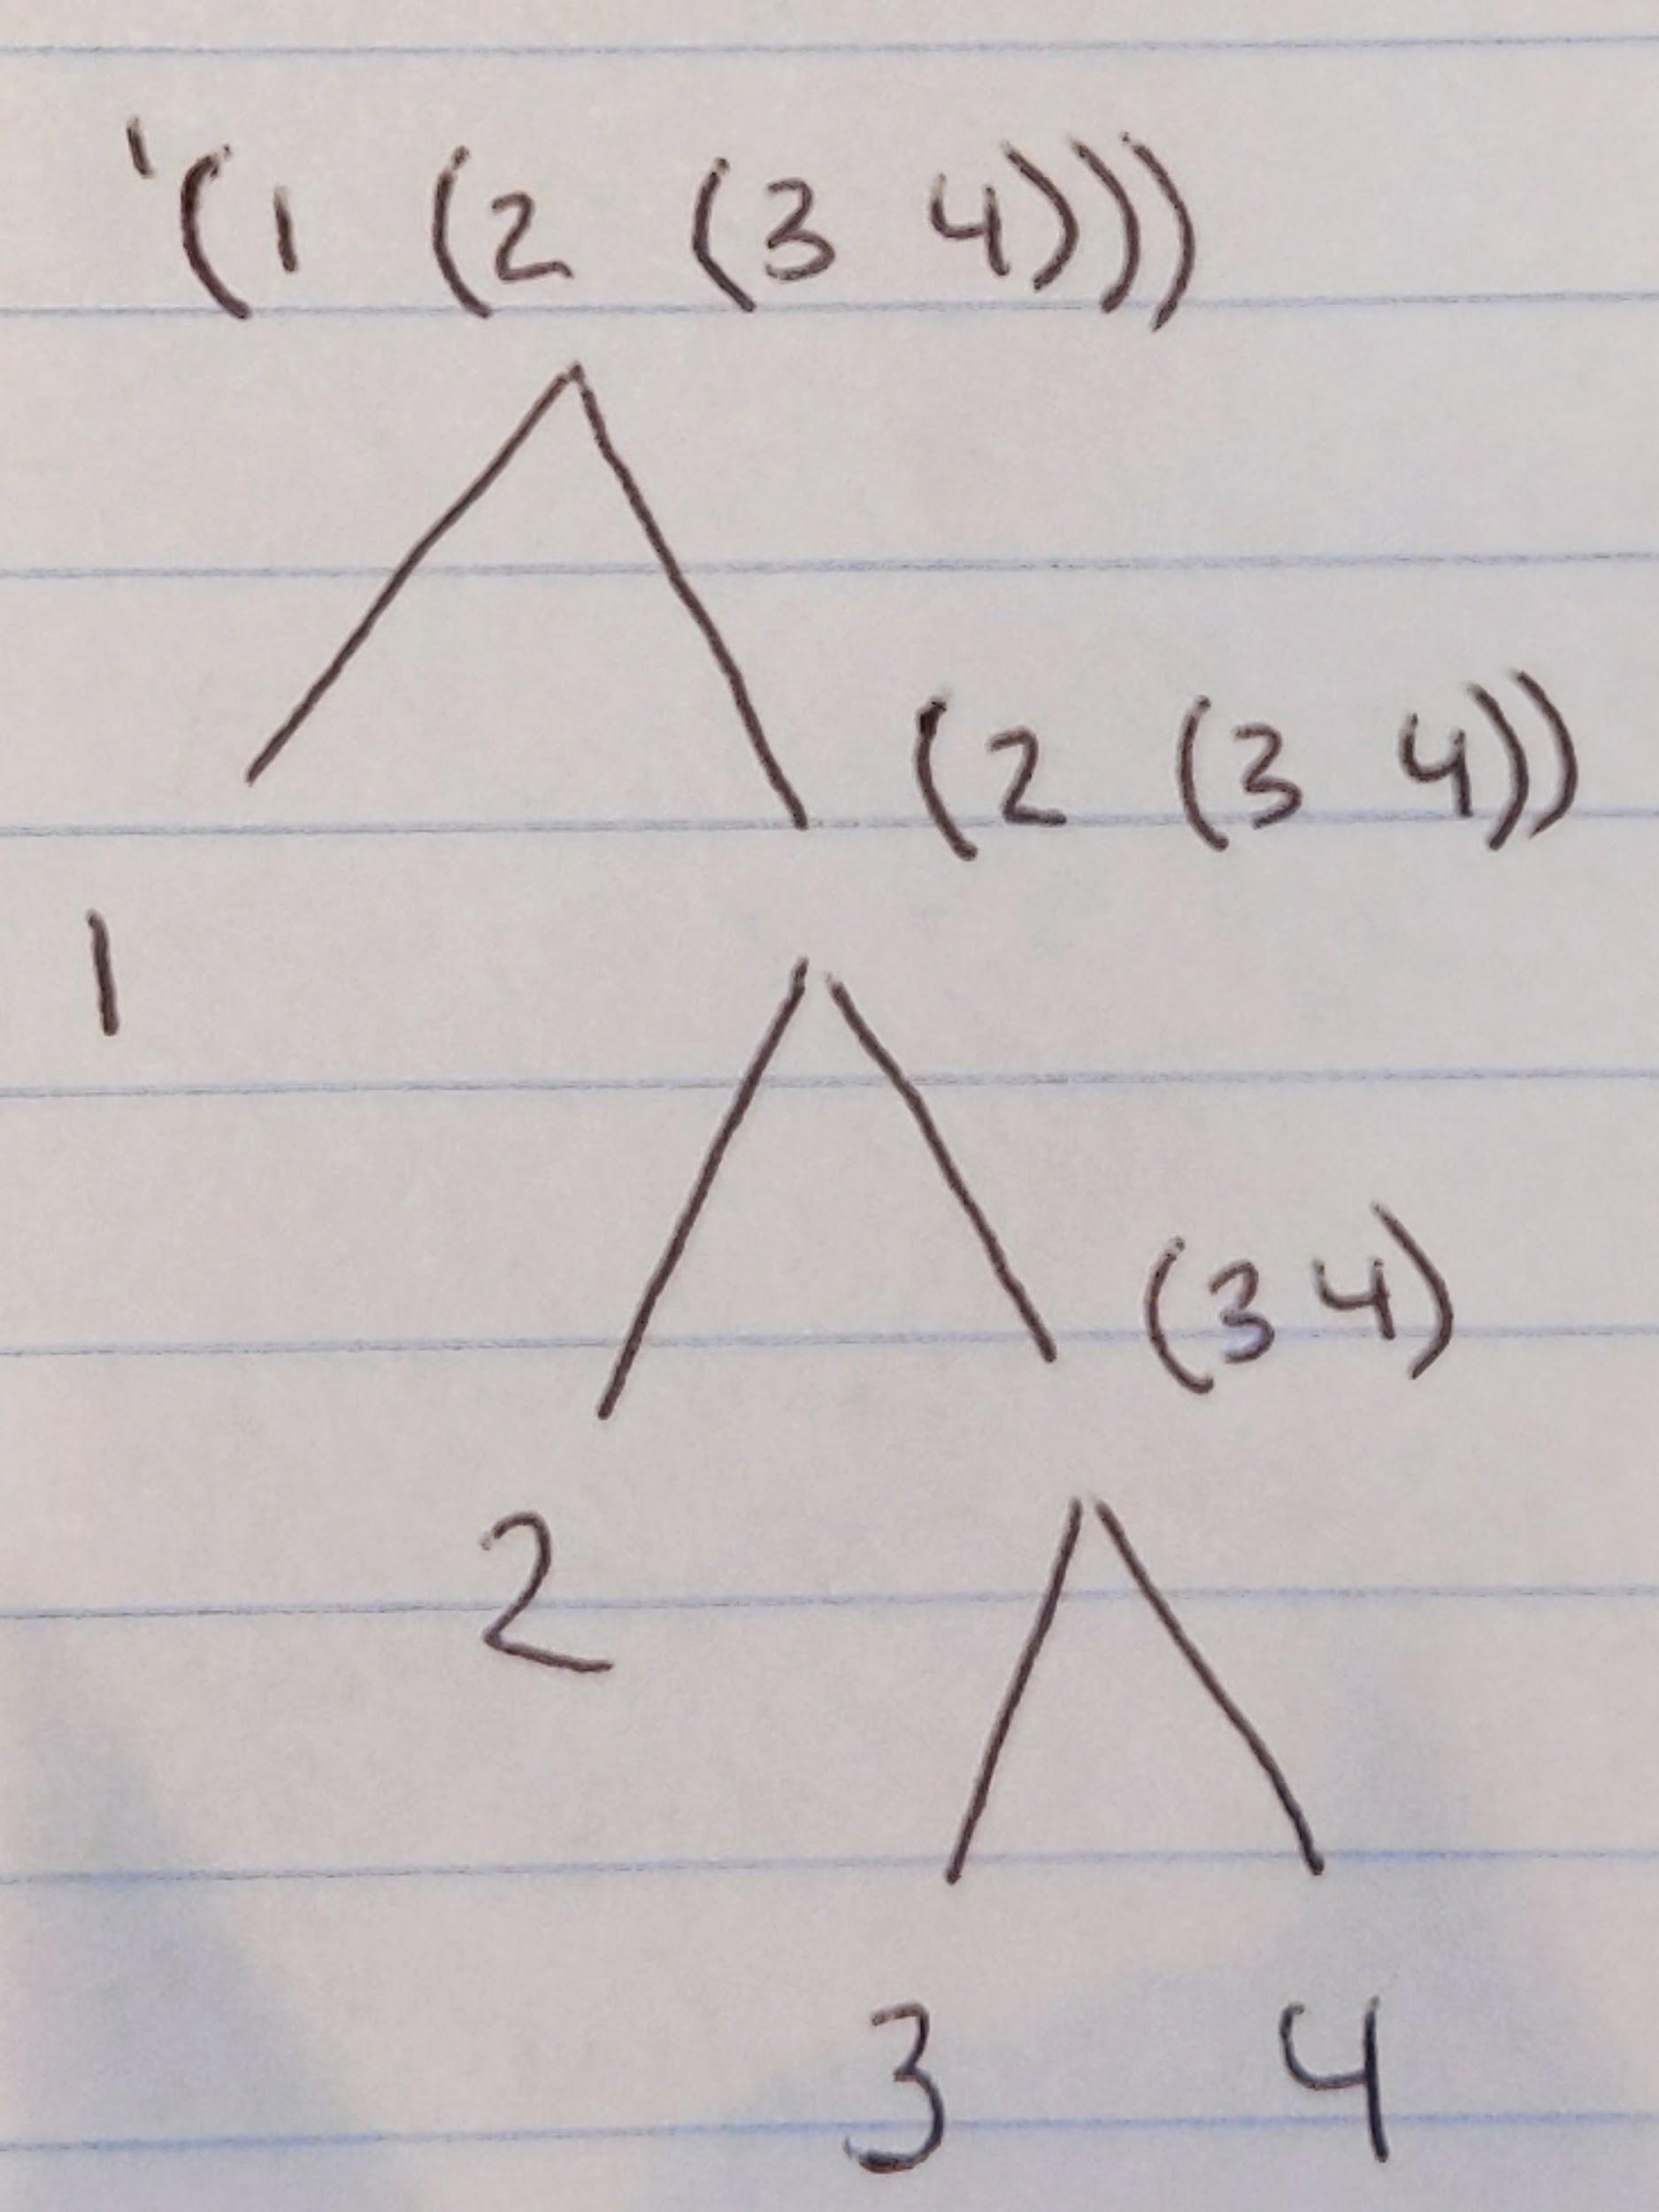 '(1 (2 (3 4)))
(2 (3 4))
1
(3 4)
2
3 4